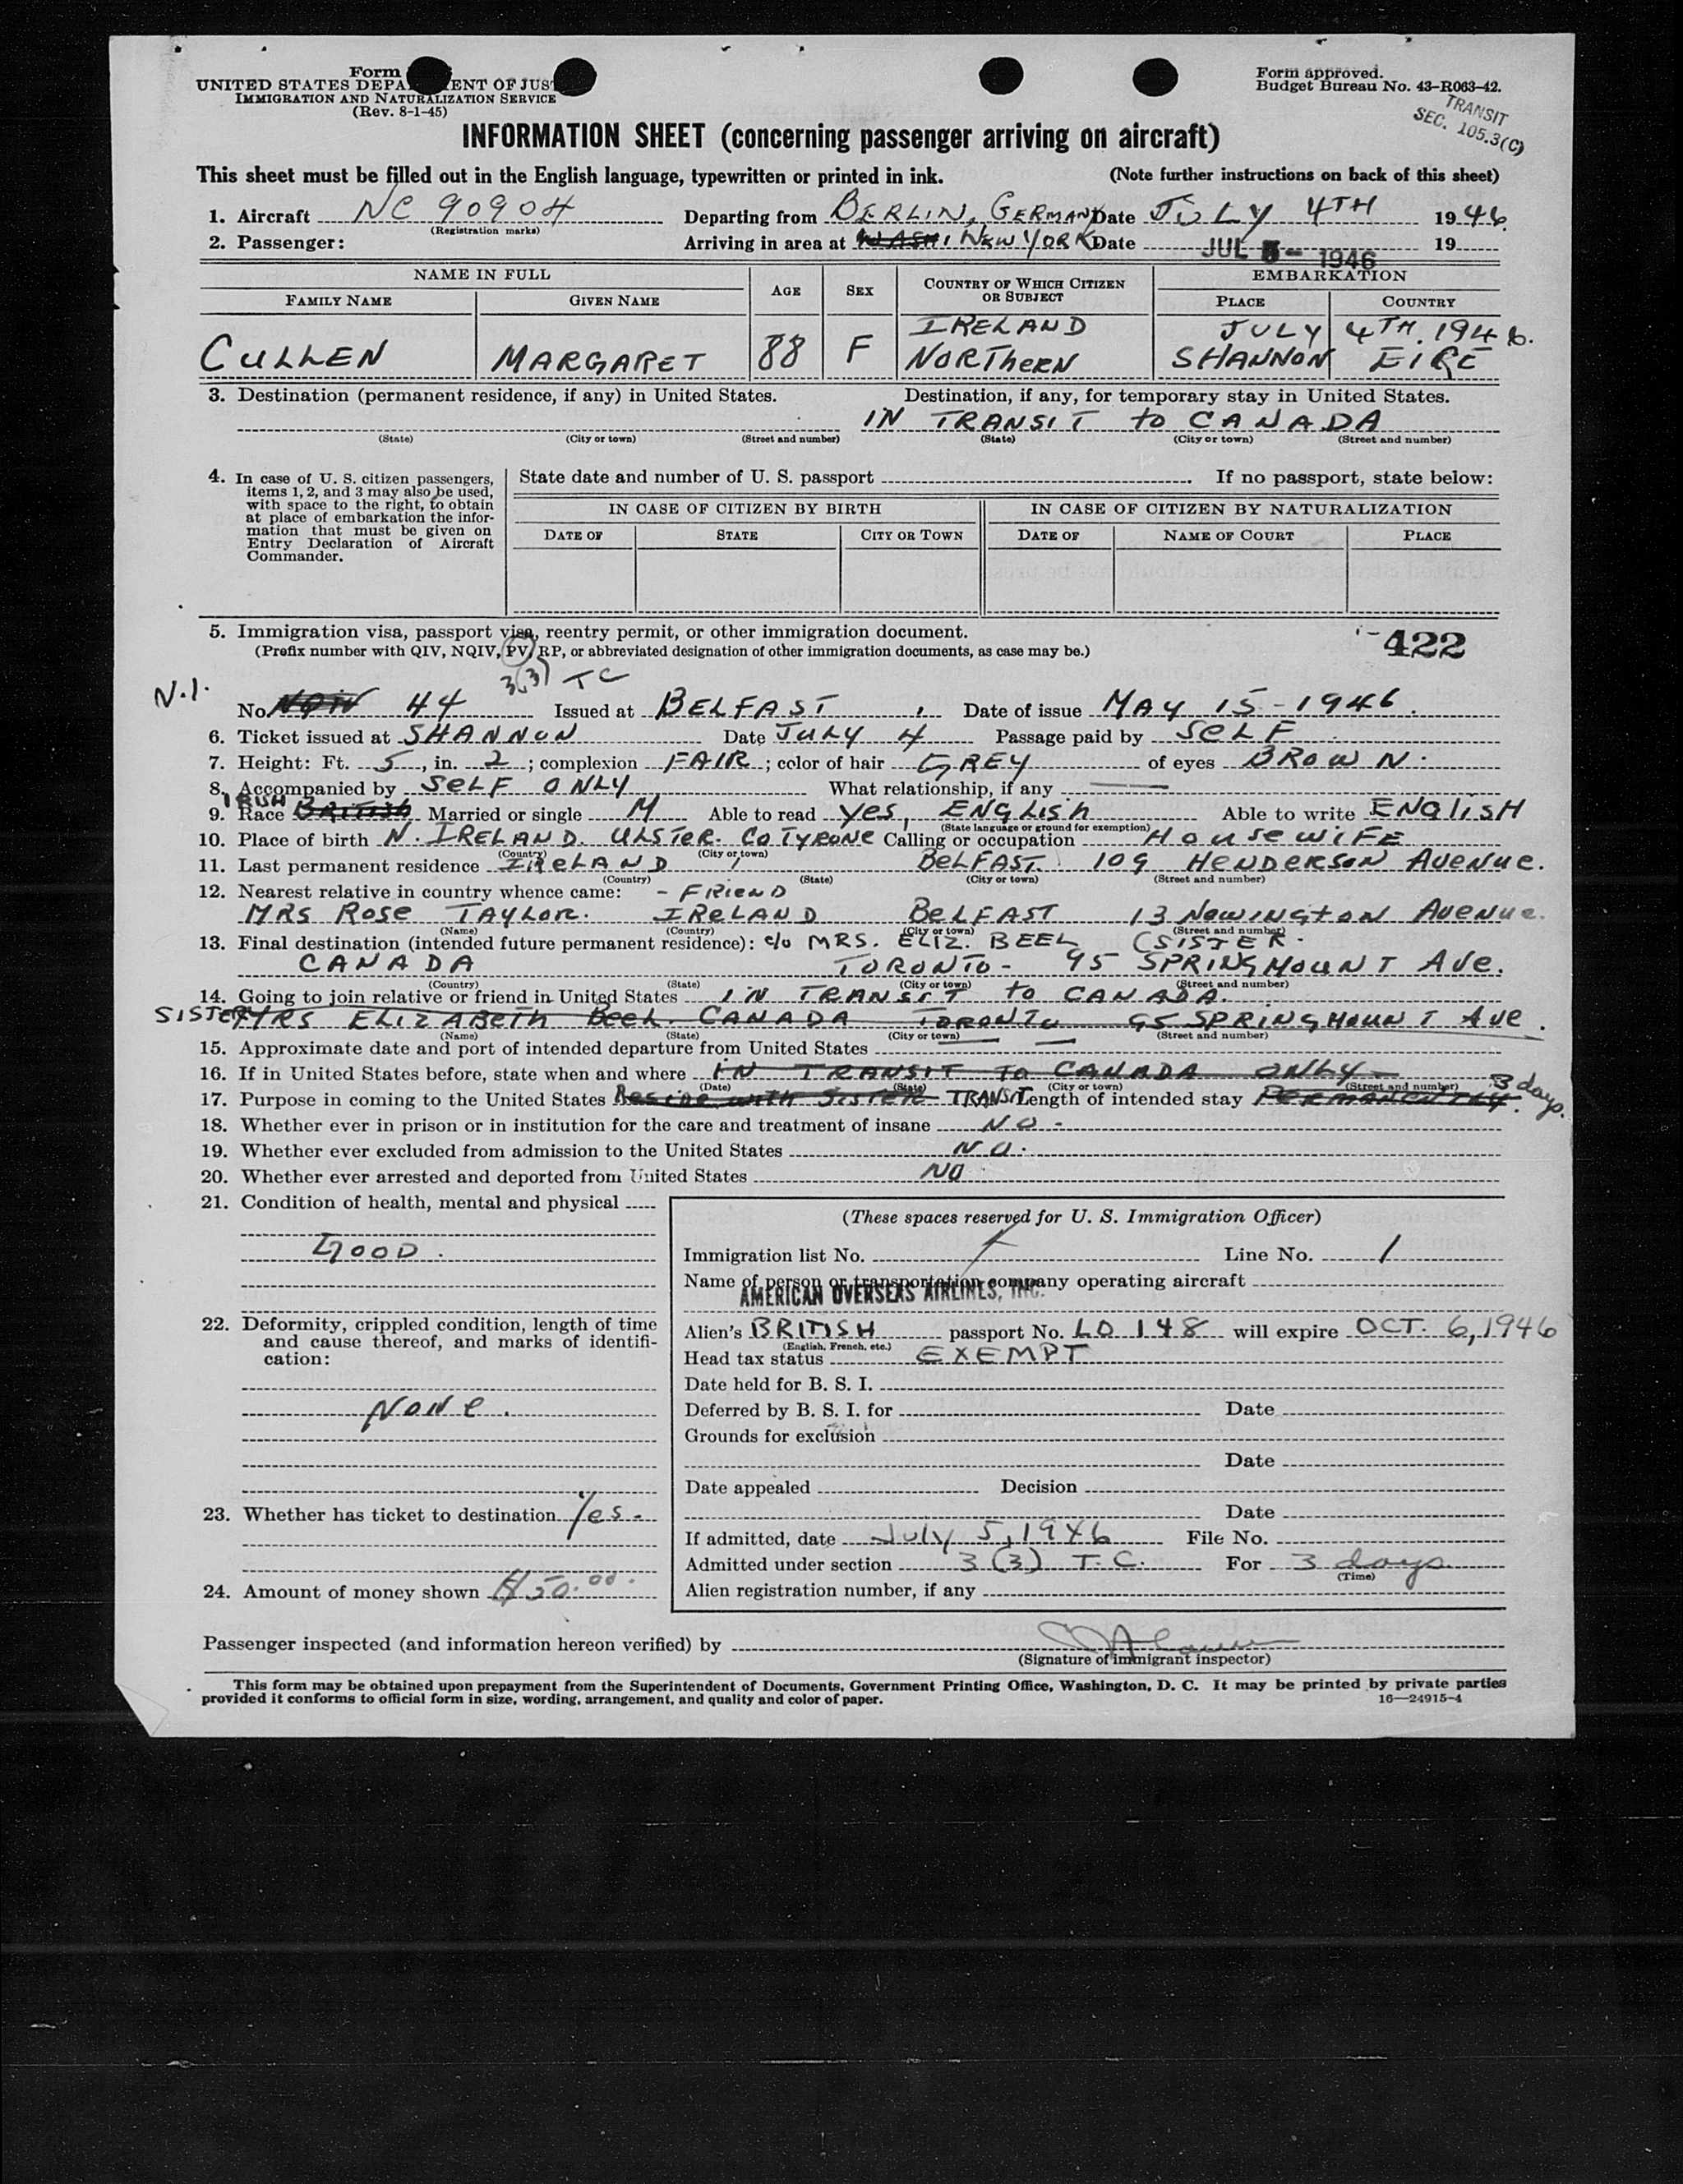 Form
UNITED STATES DEPA ENT OF JUS
IMMIGRATION AND NATURALIZATION SERVICE
(Rev. 8-1-45)
Form approved.
Budget Bureau No. 43-R063-42.
TRANSIT
SEC. 105.3(C)
INFORMATION SHEET (concerning passenger arriving on aircraft)
This sheet must be filled out in the English language, typewritten or printed in ink. (Note further instructions on back of this sheet)
1. Aircraft NC 90904 Departing from BERLIN, GERMANY Date JULY 4TH 1946
(Registration marks)
2. Passenger: Arriving in area at WASH, NEW YORK Date JUL 5- 1946 19
NAME IN FULL AGE SEX COUNTRY OF WHICH CITIZEN OR SUBJECT EMBARKATION
FAMILY NAME GIVEN NAME PLACE COUNTRY
IRELAND JULY 4TH. 1946.
CULLEN MARGARET 88 F NORTHERN SHANNON EIRE
3. Destination (permanent residence, if any) in United States. Destination, if any, for temporary stay in United States.
IN TRANSIT to CANADA
(State) (City or town) (Street and number) (State) (City or town) (Street and number)
4. In case of U. S. citizen passengers, items 1, 2, and 3 may also be used, with space to the right, to obtain at place of embarkation the information that must be given on Entry Declaration of Aircraft Commander.
State date and number of U. S. passport If no passport, state below:
IN CASE OF CITIZEN BY BIRTH IN CASE OF CITIZEN BY NATURALIZATION
DATE OF STATE CITY OR TOWN DATE OF NAME OF COURT PLACE
5. Immigration visa, passport visa, reentry permit, or other immigration document.
(Prefix number with QIV, NQIV, PV, RP, or abbreviated designation of other immigration documents, as case may be.)
422
3(3) TC
N.I.
No. NQIV 44 Issued at BELFAST, Date of issue MAY 15-1946.
6. Ticket issued at SHANNON Date JULY 4 Passage paid by SELF
7. Height: Ft. 5, in. 2; complexion FAIR; color of hair GREY of eyes BROWN.
8. Accompanied by SELF ONLY What relationship, if any
9. Race IRISH BRITISH Married or single M Able to read yes, ENGLISH Able to write ENGLISH
(State language or ground for exemption)
10. Place of birth N. IRELAND. ULSTER. CO TYRONE Calling or occupation HOUSEWIFE
(Country) (City or town)
11. Last permanent residence IRELAND BELFAST. 109 HENDERSON AVENUE.
(Country) (State) (City or town) (Street and number)
12. Nearest relative in country whence came: - FRIEND
MRS ROSE TAYLOR. IRELAND BELFAST 13 NEWINGTON AVENUE.
(Name) (Country) (City or town) (Street and number)
13. Final destination (intended future permanent residence): c/o MRS. ELIZ. BEEL (SISTER.
CANADA TORONTO- 95 SPRINGMOUNT AVE.
(Country) (State) (City or town) (Street and number)
14. Going to join relative or friend in United States IN TRANSIT to CANADA.
SISTER MRS ELIZABETH BEEL. CANADA TORONTO 95 SPRINGMOUNT AVE.
(Name) (State) (City or town) (Street and number)
15. Approximate date and port of intended departure from United States
16. If in United States before, state when and where IN TRANSIT TO CANADA ONLY
(Date) (State) (City or town) (Street and number)
17. Purpose in coming to the United States Reside with SISTER TRANSIT Length of intended stay PERMANENTLY. 3 days.
18. Whether ever in prison or in institution for the care and treatment of insane NO-
19. Whether ever excluded from admission to the United States NO.
20. Whether ever arrested and deported from United States NO
21. Condition of health, mental and physical
GOOD.
22. Deformity, crippled condition, length of time and cause thereof, and marks of identification:
NONE.
23. Whether has ticket to destination Yes-
24. Amount of money shown $50.00.
(These spaces reserved for U. S. Immigration Officer)
Immigration list No. 1 Line No. 1
Name of person or transportation company operating aircraft
AMERICAN OVERSEAS AIRLINES, INC.
Alien's BRITISH passport No. LO 148 will expire OCT. 6, 1946
(English, French, etc.)
Head tax status EXEMPT
Date held for B. S. I.
Deferred by B. S. I. for Date
Grounds for exclusion
Date
Date appealed Decision
Date
If admitted, date July 5, 1946 File No.
Admitted under section 3 (3) T.C. For 3 days
(Time)
Alien registration number, if any
Passenger inspected (and information hereon verified) by
(Signature of immigrant inspector)
This form may be obtained upon prepayment from the Superintendent of Documents, Government Printing Office, Washington, D. C. It may be printed by private parties
provided it conforms to official form in size, wording, arrangement, and quality and color of paper. 16—24915-4